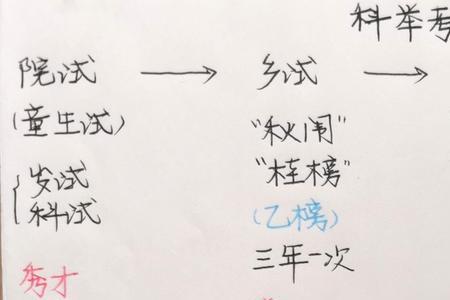 科举考
院试 → 乡试 →
(童生试)
"秋闱"
"桂榜"
岁试
科试
(乙榜)
三年一次
秀才